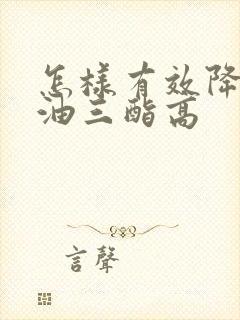 怎样有效降
油三酯高
言聲